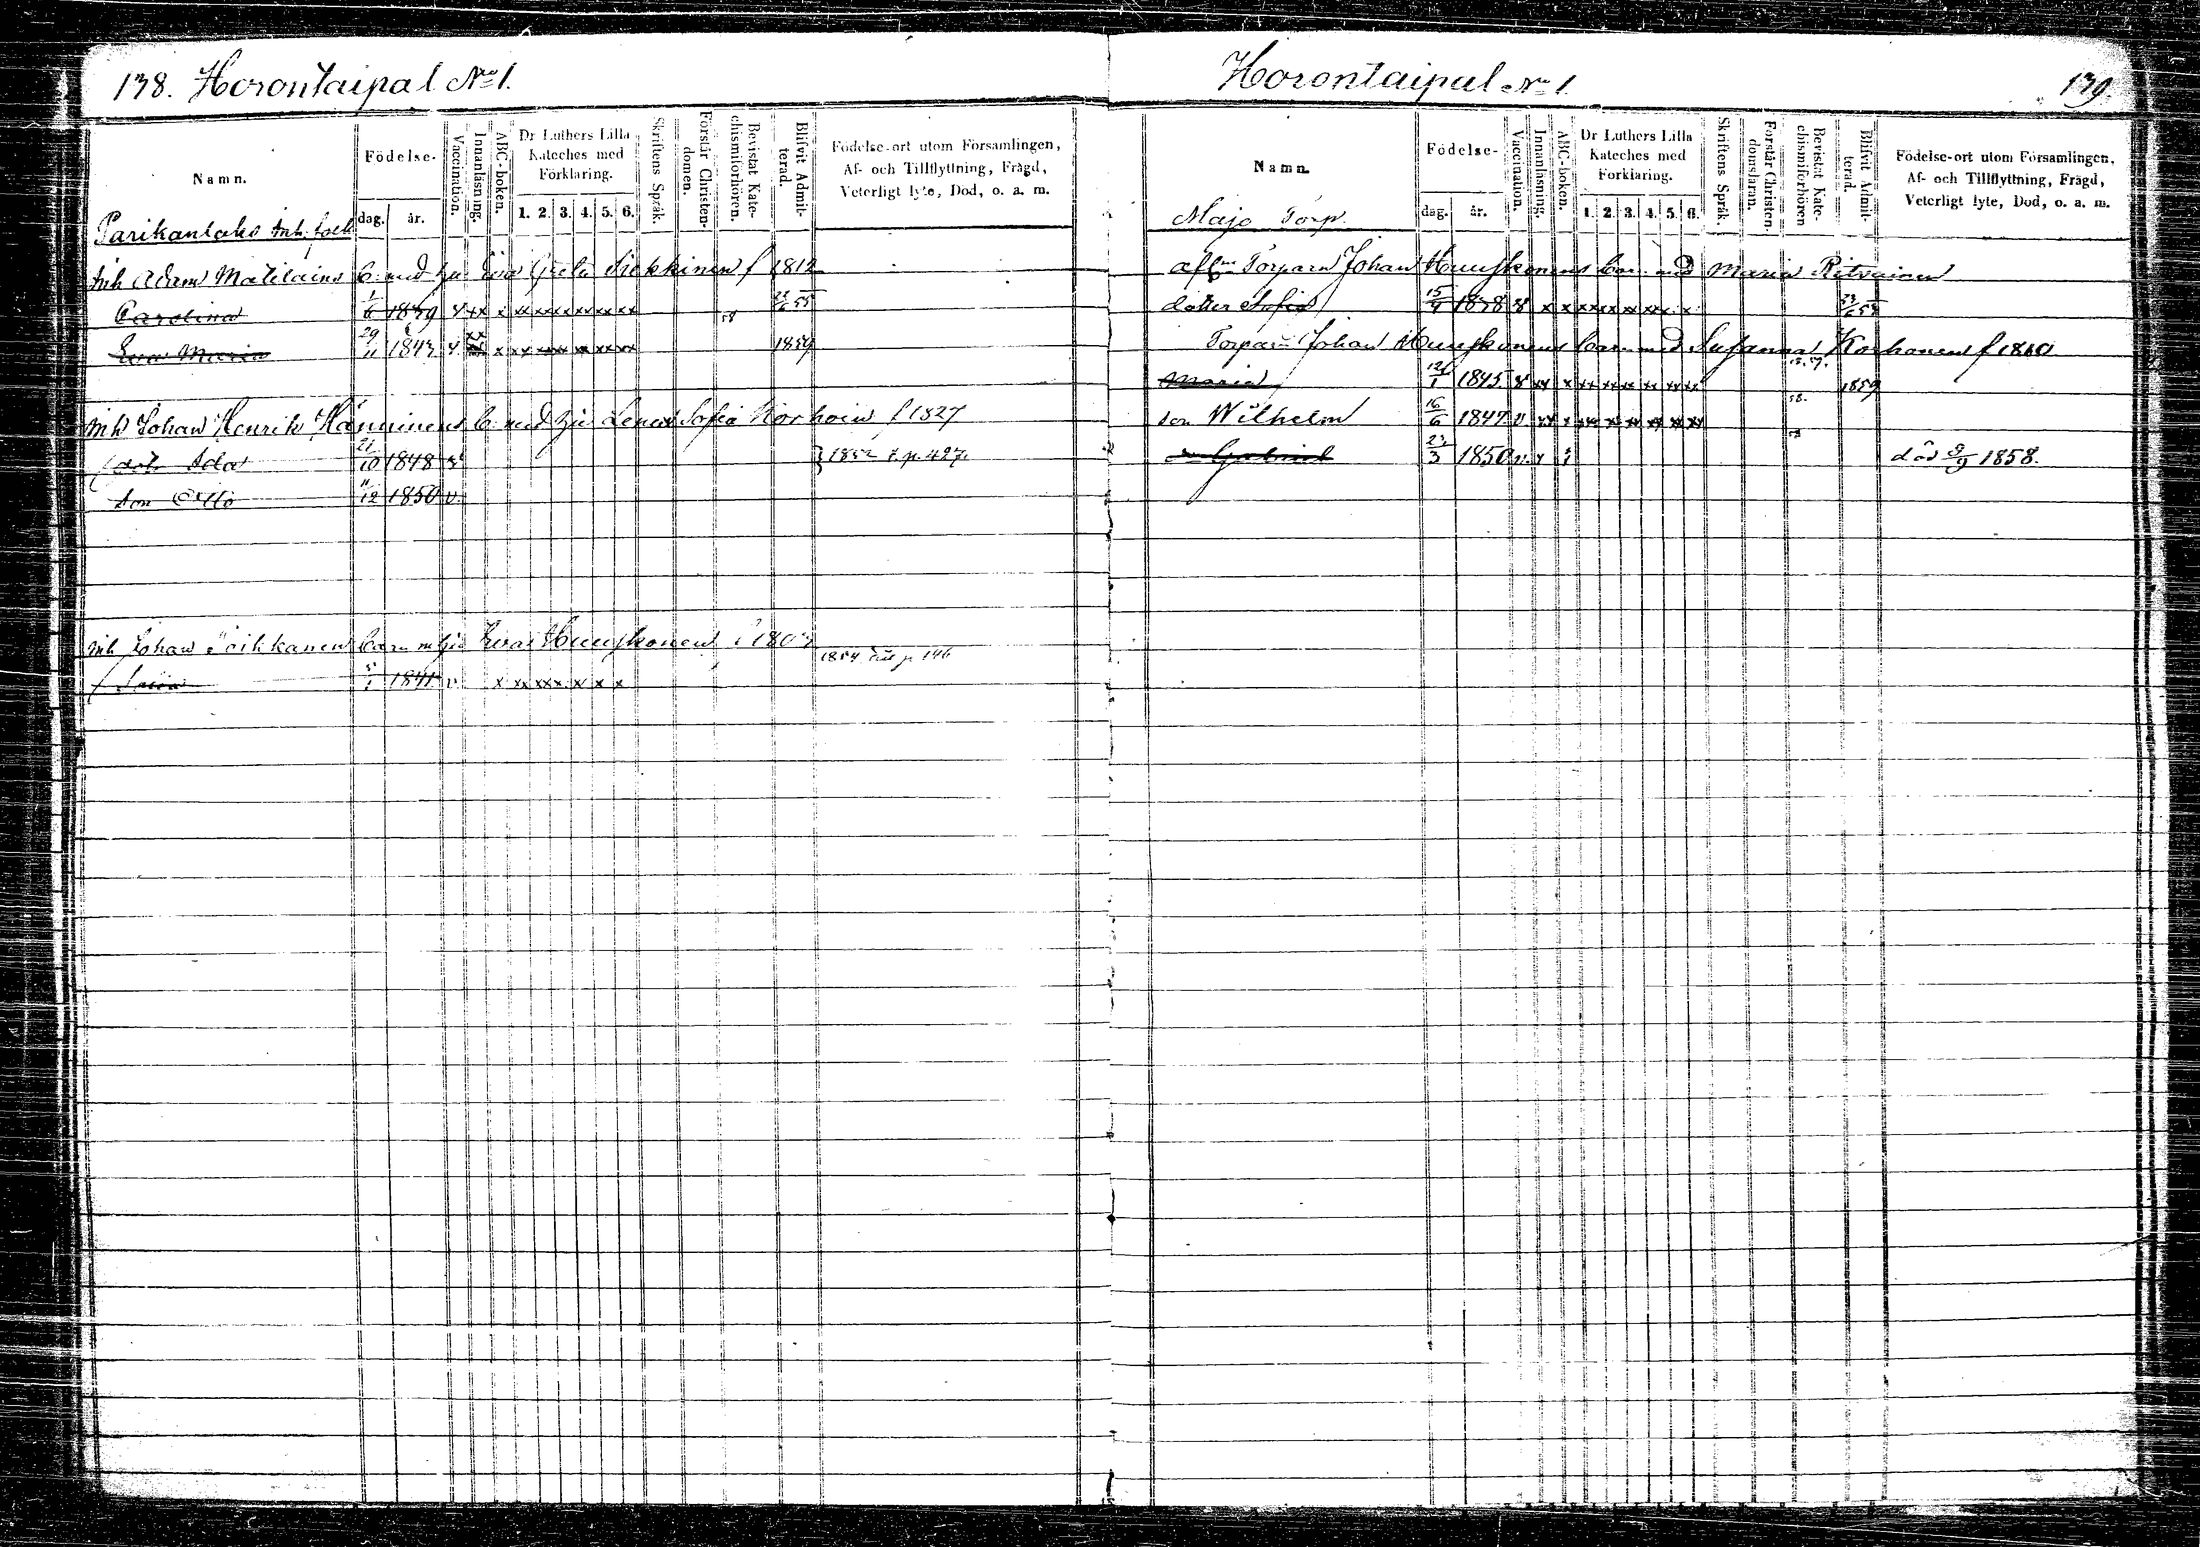 138. Horontaipal No 1.
Namn.
Födelse-
dag. år.
Vaccination.
Innanläsning.
ABC-boken.
Dr Luthers Lilla
Kateches med
Förklaring.
1. 2. 3. 4. 5. 6.
Skriftens Språk.
Förstår Christen-
domen.
Bevistat Kate-
chismiförhören.
Blifvit Admit-
terad.
Födelse-ort utom Församlingen,
Af- och Tillflyttning, Frägd,
Veterligt lyte, Död, o. a. m.
Parikanlaks Inh. folk
Inh Adam Matilains b. med hu Eva Greta f 1812
Carolina 1/6 1839 v xx x xx xxx x xx xx xx 58 55
Eva Maria 29/11 1843 v x xx xx 1859
Inh Johan Henrik Hänninens b. med hu Lena Sofia Korhoin f 1827
dotr Ada 21/10 1848 v } 1852 t. p. 427.
son Otto 11/12 1850 v.
Inh Johan barn m hu Eva Huuskonen
1854 p 146
1841 v x xx xxx x x x
Horontaipal No 1. 139.
Namn.
Födelse-
dag. år.
Vaccination.
Innanläsning.
ABC-boken.
Dr Luthers Lilla
Kateches med
Förklaring.
1. 2. 3. 4. 5. 6.
Skriftens Språk.
Förstår Christen-
domsläran.
Bevistat Kate-
chismiförhören
Blifvit Admit-
terad.
Födelse-ort utom Församlingen,
Af- och Tillflyttning, Frägd,
Veterligt lyte, Död, o. a. m.
Majo Torp.
afl. Torparn Johan Huuskonens barn med Maria
dotter Sofia 15/4 1838 v x x xx xx xx xx x
Torparn Johan Huuskonens barn med Susanna Korhonen f 1810
Maria 1845 v xx x xx xx xx xx xx 1859
58.
son Wilhelm 16/6 1847 v xx x xx xx xx xx xx
58
Gabriel 23/3 1850 v. x död 3/9 1858.